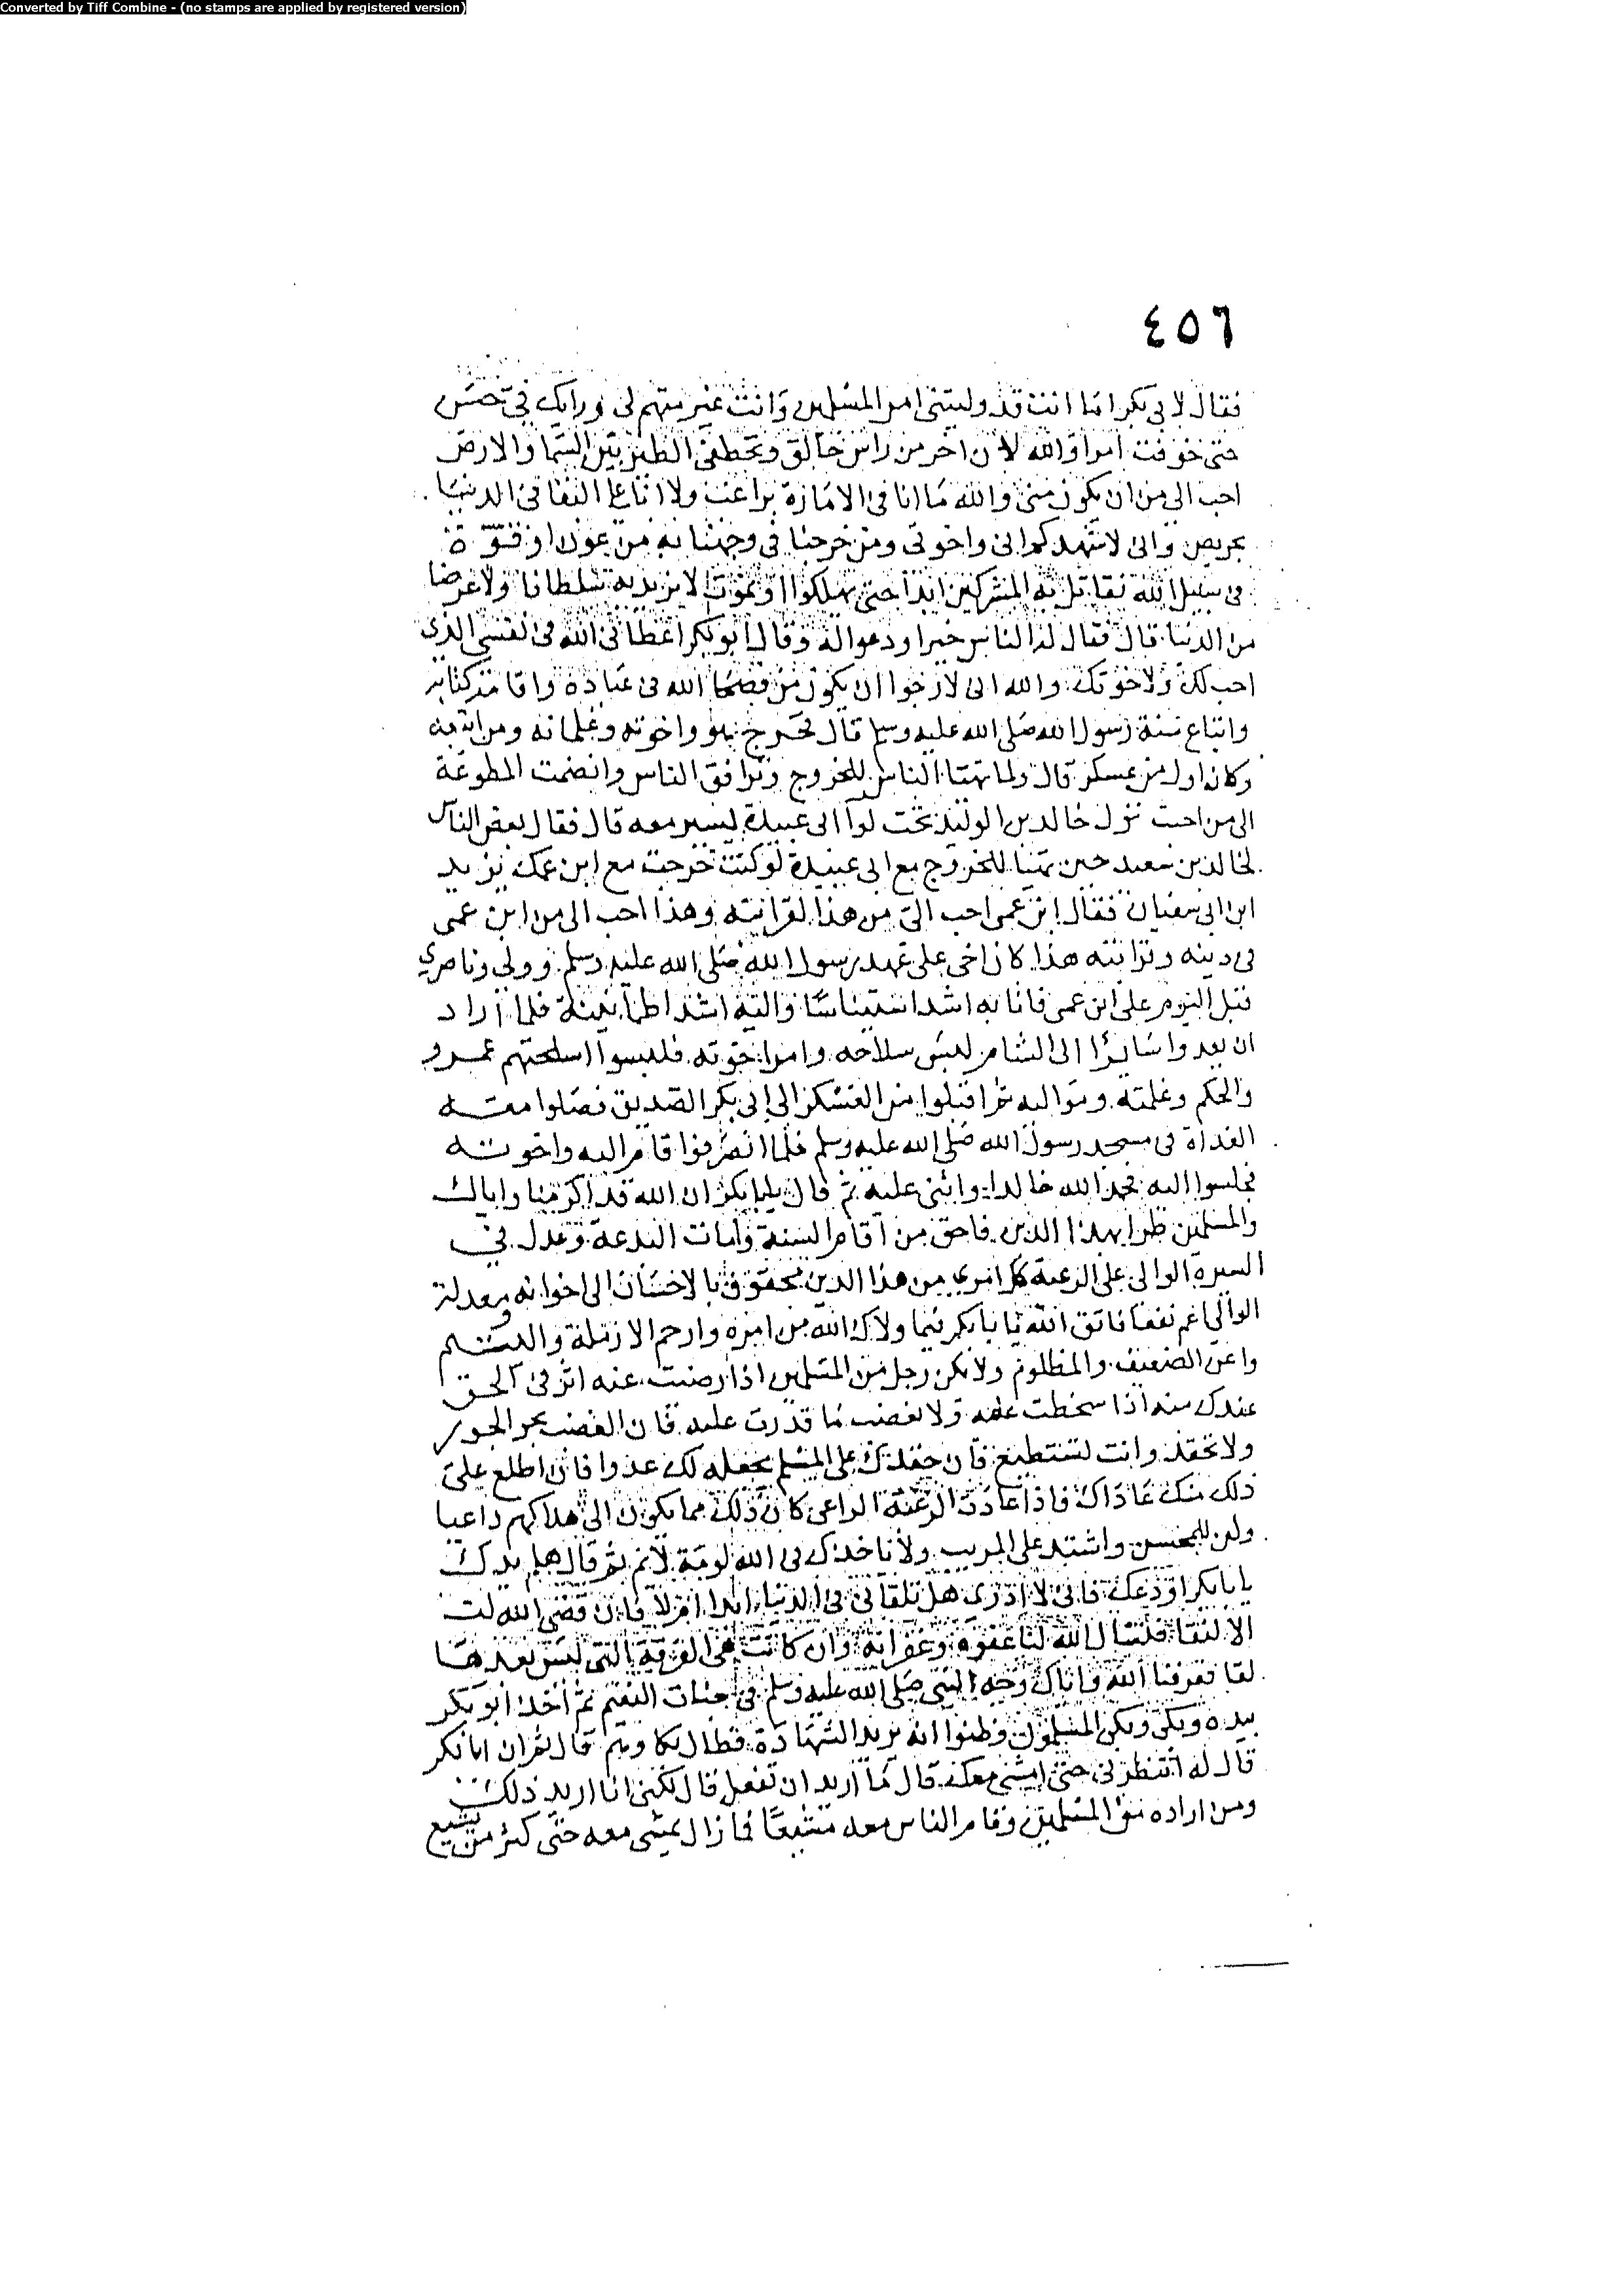 Converted by Tiff Combine - (no stamps are applied by registered version)
٤٥٦
فقال لابي بكر اما انت قد وليتني امر المسلمين وانت غير متهم لي ورايك في حسن
حتى خوفت امرا والله لان اخر من راس حالق وتخطفني الطير بين السما والارض
احب الي من ان يكون مني والله ما انا في الامارة براغب ولا انا على البقا في الدنيا
بحريص واني لاشهدكم اني واخوتي ومن خرجنا في وجهنا به من عون او قوة
في سبيل الله نقاتل به المشركين ابدا حتى يهلكوا او نموت لا نريد به سلطانا ولا عرضا
من الدنيا قال فقال له الناس خيرا ودعوا له وقال ابو بكر اعطاني الله في نفسي الذي
احب لك ولاخوتك والله اني لارجوا ان يكون من نصحا الله في عباده واقامة كتابه
واتباع سنة رسول الله صلى الله عليه وسلم قال فخرج هو واخوته وغلمانه ومن اتبعه
وكان اول من عسكر قال ولما تهيا الناس للخروج وترافق الناس وانضمت المطوعة
الى من احبت نزل خالد بن الوليد تحت لوا ابي عبيدة ليسير معه قال فقال بعض الناس
لخالد بن سعيد حين تهيا للخروج مع ابي عبيدة لو كنت خرجت مع ابن عمك يزيد
ابن ابي سفيان فقال ابن عمي احب الي من هذا لقرابته وهذا احب الي من ابن عمي
في دينه وقرابته هذا كان اخي على عهد رسول الله صلى الله عليه وسلم وولي وناصري
قبل اليوم على ابن عمي فانا به اشد استيناسا واليه اشد اطمأنينة فلما اراد
ان يعدوا سايرا الى الشام لبس سلاحه وامر اخوته فلبسوا اسلحتهم عمرو
والحكم وغلمته ومواليه ثم اقبلوا من العسكر الى ابي بكر الصديق فصلوا معه
الغداة في مسجد رسول الله صلى الله عليه وسلم فلما انصرفوا قام اليه واخوته
فجلسوا اليه فحمد الله خالد واثنى عليه ثم قال يابا بكر ان الله قد اكرمنا واياك
والمسلمين طرا بهذا الدين فاحق من اقام السنة وامات البدعة وعدل في
السيرة الوالي على الرعية كل امرئ من هذا الدين محقوق بالاحسان الى اخوانه ومعدلة
الوالي اعم نفعا فاتق الله يابا بكر فيما ولاك الله من امره وارحم الارملة واليتيم
واعن الضعيف والمظلوم ولا يكن رجل من المسلمين اذا رضيت عنه اثر في الحق
عندك منه اذا سخطت عليه ولا تغضب ما قدرت عليه فان الغضب يجر الجور
ولا تحقد وانت تستطيع فان حقدك على المسلم يجعله لك عدوا فان اطلع على
ذلك منك عاداك فاذا عادت الرعية الراعي كان ذلك مما يكون الى هلاكهم داعيا
ولن للمحسن واشتد على المريب ولا تاخذك في الله لومة لائم ثم قال هلم يدك
يابا بكر اودعك فاني لا ادري هل تلقاني في الدنيا ابدا ام لا فان قضى الله لنا
الالتقا فنسال الله لنا عفوه وغفرانه وان كانت هي الفرقة التي ليس بعدها
لقا فعرفنا الله واياك وجه النبي صلى الله عليه وسلم في جنات النعيم ثم اخذ ابو بكر
بيده وبكى وبكى المسلمون وظنوا انه يريد الشهادة فطال بكاوهم قال ثم ان ابا بكر
قال له انتظرني حتى امشي معك قال ما اريد ان تفعل قال لكني انا اريد ذلك
ومن اراده من المسلمين وقام الناس معه مشيعا فما زال يمشي معه حتى كثر من يشيع